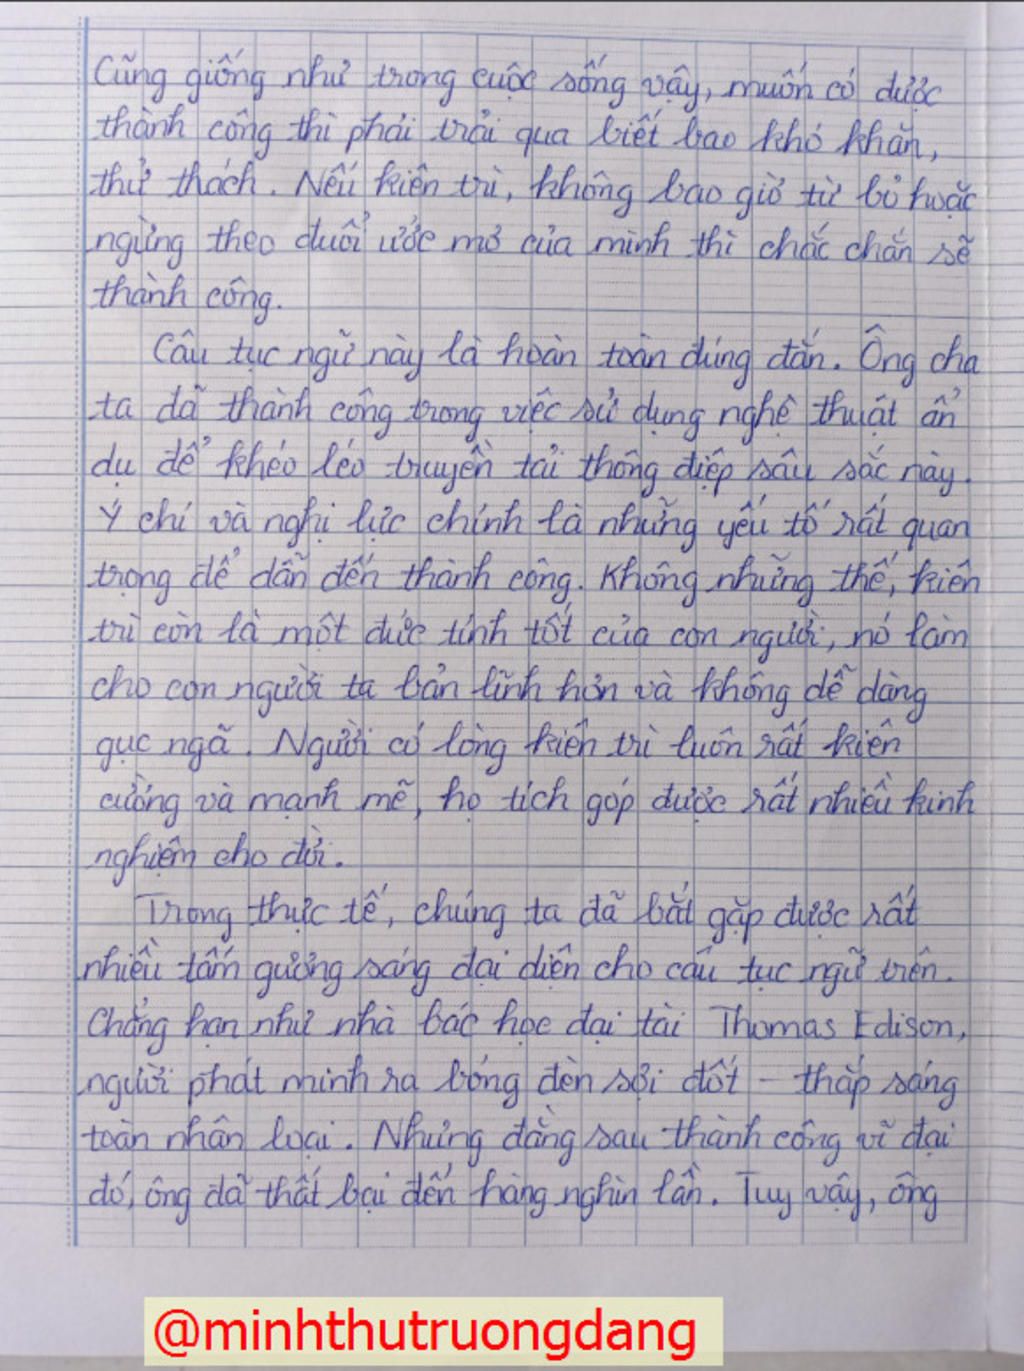 Cũng giống như trong cuộc sống vậy, muốn có được
thành công thì phải trải qua biết bao khó khăn,
thử thách. Nếu kiên trì, không bao giờ từ bỏ hoặc
ngừng theo đuổi ước mơ của mình thì chắc chắn sẽ
thành công.
Câu tục ngữ này là hoàn toàn đúng đắn. Ông cha
ta đã thành công trong việc sử dụng nghệ thuật ẩn
dụ để khéo léo truyền tải thông điệp sâu sắc này.
Ý chí và nghị lực chính là những yếu tố rất quan
trọng để dẫn đến thành công. Không những thế, kiên
trì còn là một đức tính tốt của con người, nó làm
cho con người ta bản lĩnh hơn và không dễ dàng
gục ngã. Người có lòng kiên trì luôn rất kiên
cường và mạnh mẽ, họ tích góp được rất nhiều kinh
nghiệm cho đời.
Trong thực tế, chúng ta đã bắt gặp được rất
nhiều tấm gương sáng đại diện cho câu tục ngữ trên.
Chẳng hạn như nhà bác học đại tài Thomas Edison,
người phát minh ra bóng đèn sợi đốt - thắp sáng
toàn nhân loại. Nhưng đằng sau thành công vĩ đại
đó, ông đã thất bại đến hàng nghìn lần. Tuy vậy, ông
@minhthutruongdang